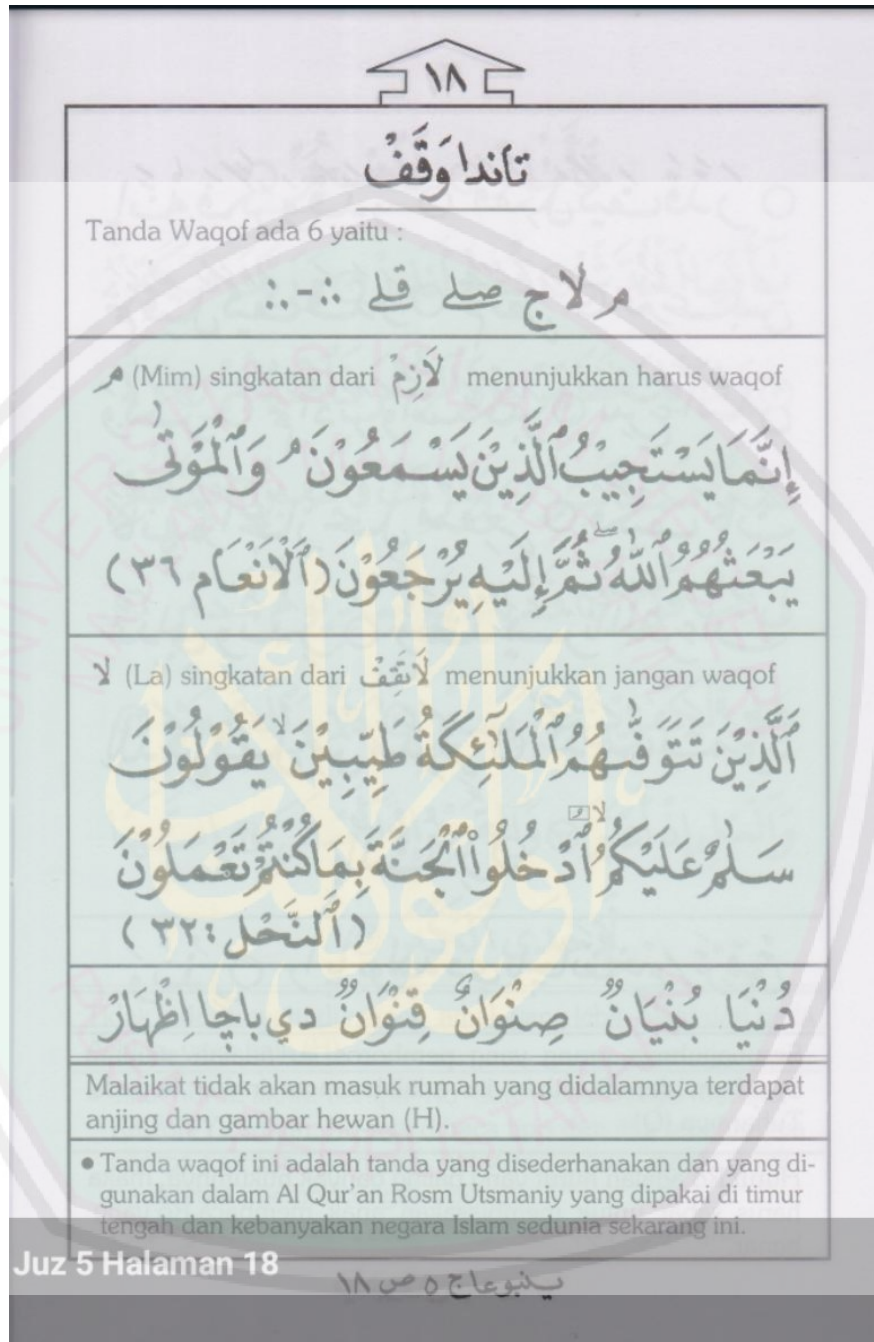 ١٨
تاندا وَقَفْ
Tanda Waqof ada 6 yaitu :
م لا ج صلے قلے ∴-∴
م (Mim) singkatan dari لَازِمْ menunjukkan harus waqof
إِنَّمَا يَسْتَجِيْبُ ٱلَّذِيْنَ يَسْمَعُوْنَ ۘ وَٱلْمَوْتٰى
يَبْعَثُهُمُ ٱللّٰهُ ۖ ثُمَّ إِلَيْهِ يُرْجَعُوْنَ (ٱلْأَنْعَام ٣٦)
لا (La) singkatan dari لَاتَقِفْ menunjukkan jangan waqof
ٱلَّذِيْنَ تَتَوَفّٰىهُمُ ٱلْمَلٰٓئِكَةُ طَيِّبِيْنَ ۙ يَقُوْلُوْنَ
سَلٰمٌ عَلَيْكُمُ ٱدْخُلُوْا ٱلْجَنَّةَ بِمَا كُنْتُمْ تَعْمَلُوْنَ
(ٱلنَّحْل : ٣٢)
دُنْيَا بُنْيَانٌ صِنْوَانٌ قِنْوَانٌ دي باچا اِظْهَارْ
Malaikat tidak akan masuk rumah yang didalamnya terdapat
anjing dan gambar hewan (H).
• Tanda waqof ini adalah tanda yang disederhanakan dan yang di-
gunakan dalam Al Qur'an Rosm Utsmaniy yang dipakai di timur
tengah dan kebanyakan negara Islam sedunia sekarang ini.
Juz 5 Halaman 18
ينبوعا ج ٥ ص ١٨